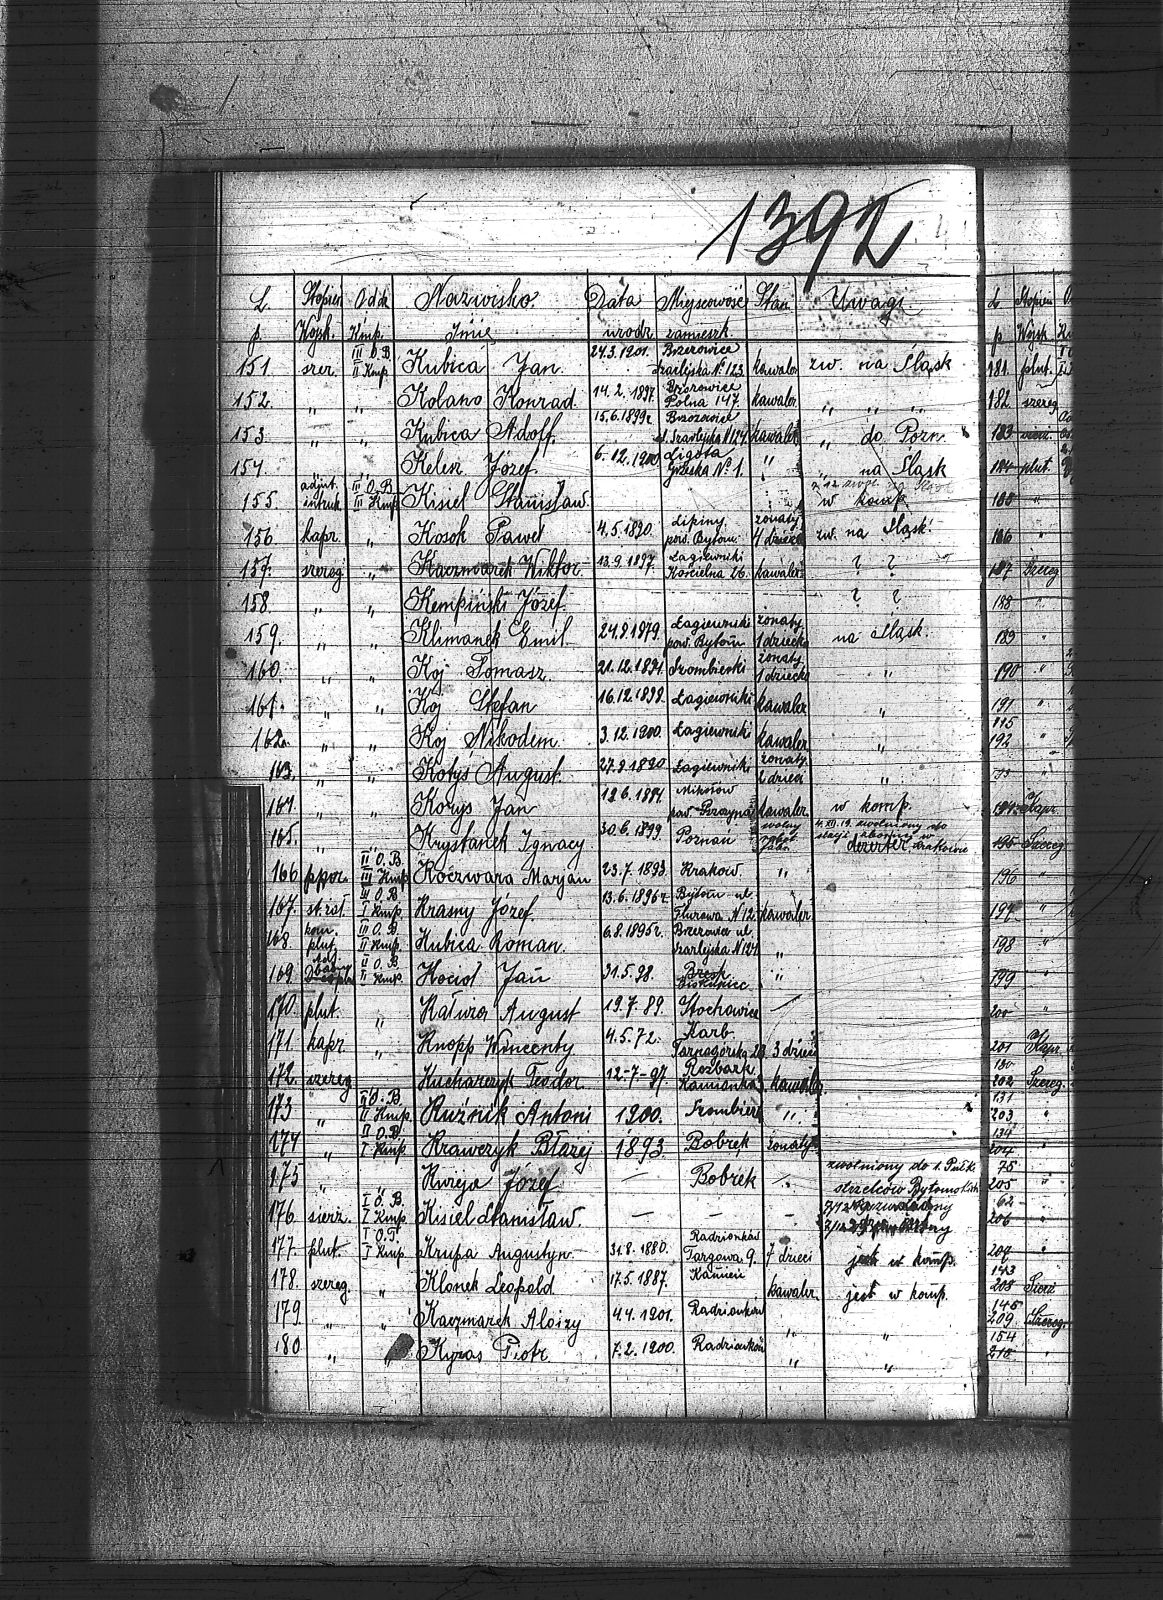 1392
L. Stopień Oddz Nazwisko Data Miejscowość Stan Uwagi
p. Wojsk. Kmp. Imię urodz zamieszk.
151. szer. III O.B. II Kmp. Kubica Jan 24.3.1901. Brzozowice Szarlejska № 123 kawaler zw. na Śląsk
152. " " Kolano Konrad 14.2.1897. Brzozowice Polna 147. kawaler " " "
153. " " Kubica Adolf. 15.6.1899r Brzozowice ul. Szarlejska N 124 kawaler " do Pozn.
154. Kelesz Józef 6.12.1900 Ligota № 1. " " na Śląsk
155. adjut. III O.B. III Kmp Kisiel Stanisław w komp.
156. kapr. " Kosok Paweł 4.5.1890. Lipiny pow. Bytom żonaty 4 dzieci zw. na Śląsk.
157. szereg " Kaczmarek Wiktor. 13.9.1897. Łagiewniki Kościelna 26. kawaler ? ?
158. " " Kempiński Józef. ? ?
159. " " Klimanek Emil. 24.9.1879. Łagiewniki pow. Bytom żonaty 1 dziecko na Śląsk.
160. " " Koj Tomasz. 21.12.1891. Szombierki żonaty 1 dziecko "
161. " " Koj Stefan 16.12.1898. Łagiewniki kawaler "
162. " " Koj Nikodem. 3.12.1900. Łagiewniki kawaler "
163. " " Kotyś August. 27.9.1890 Łagiewniki żonaty. 2 dzieci "
164. " " Korys Jan 12.6.1894 Mikołów pow. Pszczyna kawaler w komp.
165. " Krystanek Ignacy 30.6.1899. Poznań wolny 4.XII.19. zwolniony do stacji zbornej w Krakowie dezerter
166. ppor. II O.B. III Kmp Koczwara Marjan 23.7.1893. Kraków. "
167. III O.B I Kmp. Krasny Józef. 13.6.1896r. Bytom ul. Flurowa N 12. kawaler
168. plut. III O.B. II Kmp. Kubica Roman. 6.8.1895r. Brzozowice ul. Szarlejska N 124 "
169. II O.B. I Kmp. Kocioł Jan 31.5.98. Biskupice "
170. plut. " Kałuża August 19.7.89. —
171. kapr. " Knopp Wincenty 4.5.72. Karb Tarnogórska 3 dzieci
172. szereg " Kucharczyk Teodor. 12-7-97. Rozbark Kamionka kawaler
173 " II O.B. II Kmp. Kuźnik Antoni 1900. Szombierki "
174 " II O.B. I Kmp. Krawczyk Błażej 1893. Bobrek żonaty
175 " " Kwieja Józef — Bobrek — zwolniony do 1. Pułk. strzelców Bytomskich
176. sierż. I O.B. I Kmp. Kisiel Stanisław. — — —
177. plut. I Kmp. Krupa Augustyn 31.8.1880. Radzionków Targowa 9. 7 dzieci jest w komp.
178. szereg. " Klonek Leopold 17.5.1887. Kamień kawaler jest w komp.
179. " " Kaczmarek Aloizy 4.4.1901. Radzionków " "
180 " Kyras Piotr. 7.2.1900. Radzionków " "
L. Stopień
p Wojsk
181. plut.
182. szereg
183
184 plut.
185 "
186 "
187 Szereg
188 "
189 "
190 "
191 "
115
192 "
194. Kapr.
195 Szereg
196 "
197 "
198 "
199 "
200 "
201 Kapr
130
202 Szereg.
131
203 "
134
204 "
75
205 "
62
206 "
207 "
143
208
145
209 Szereg.
154
210 "